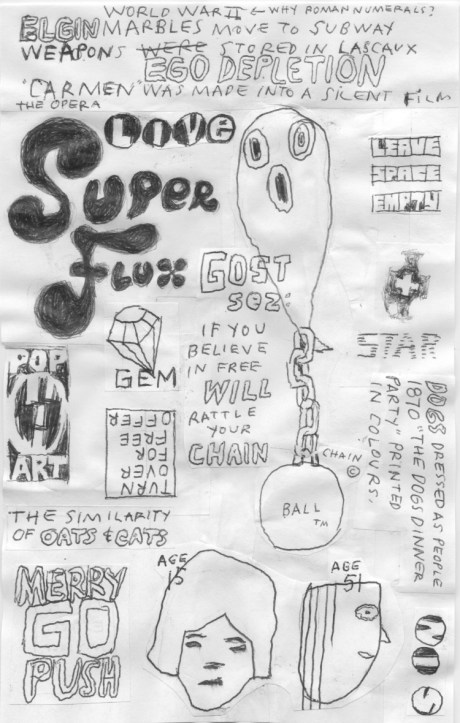 WORLD WAR II ← WHY ROMAN NUMERALS?
ELGIN MARBLES MOVE TO SUBWAY
WEAPONS WERE STORED IN LASCAUX
EGO DEPLETION
"CARMEN" WAS MADE INTO A SILENT FILM
THE OPERA
LIVE
SUPER
FLUX
LEAVE
SPACE
EMPTY
GOST
SEZ"
IF YOU
BELIEVE
IN FREE
WILL
RATTLE
YOUR
CHAIN
CHAIN ©
BALL
TM
STAR
GEM
POP
ART
TURN
OVER
FOR
FREE
OFFER
DOGS DRESSED AS PEOPLE
1870 "THE DOGS DINNER
PARTY" PRINTED
IN COLOURS.
THE SIMILARITY
OF OATS & CATS
MERRY
GO
PUSH
AGE
15
AGE
51